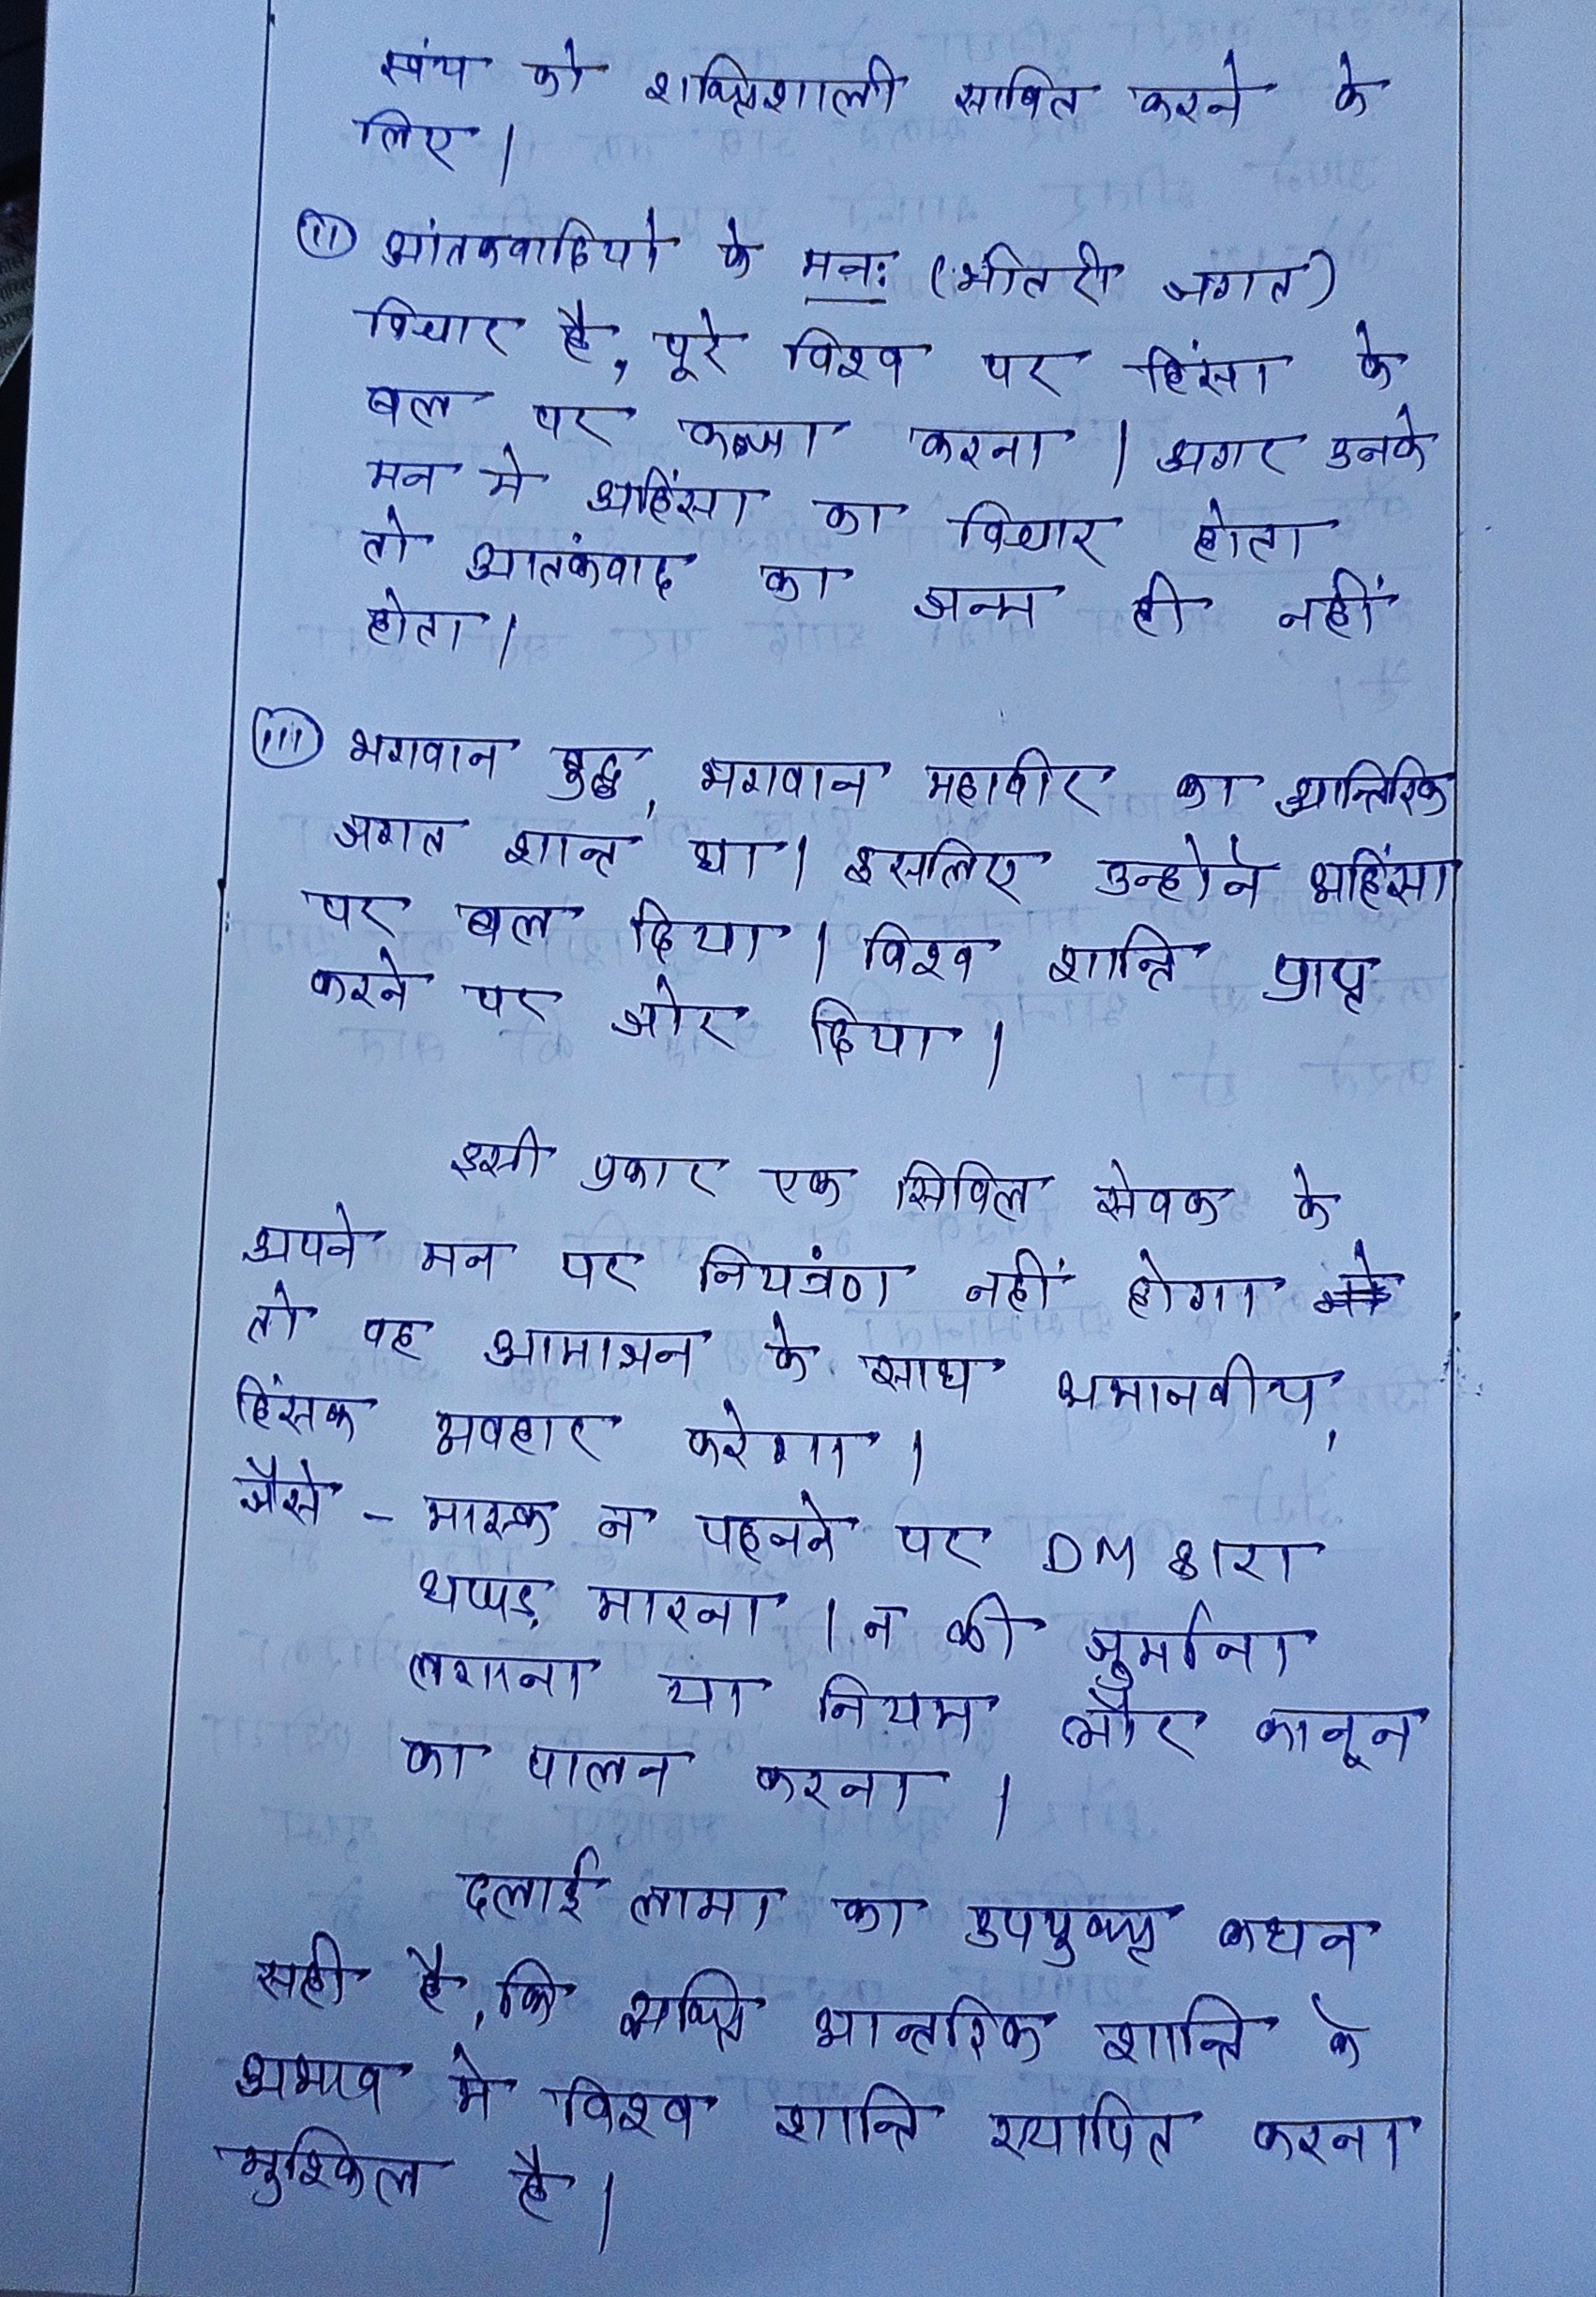 स्वंय को शक्तिशाली साबित करने के
लिए।
(ii) आंतकवादियो के मन: (भीतरी जगत)
विचार है, पूरे विश्व पर हिंसा के
बल पर कब्जा करना। अगर उनके
मन मे अहिंसा का विचार होता
तो आतकंवाद का जन्म ही नहीं
होता।
(iii) भगवान बुद्ध, भगवान महावीर का आन्तिरिक
जगत शान्त था। इसलिए उन्होने अहिंसा
पर बल दिया। विश्व शान्ति प्राप्त
करने पर जोर दिया।
इसी प्रकार एक सिविल सेवक के
अपने मन पर नियत्रंण नहीं होगा
तो वह आमाजन के साथ अमानवीय,
हिंसक व्यवहार करेगा।
जैसे - मास्क न पहनने पर DM द्वारा
थप्पड़ मारना। न की जुर्माना
लगाना या नियम और कानून
का पालन करना।
दलाई लामा का उपयुक्त कथन
सही है, कि व्यक्ति आन्तरिक शान्ति के
अभाव मे विश्व शान्ति स्थापित करना
मुश्किल है।